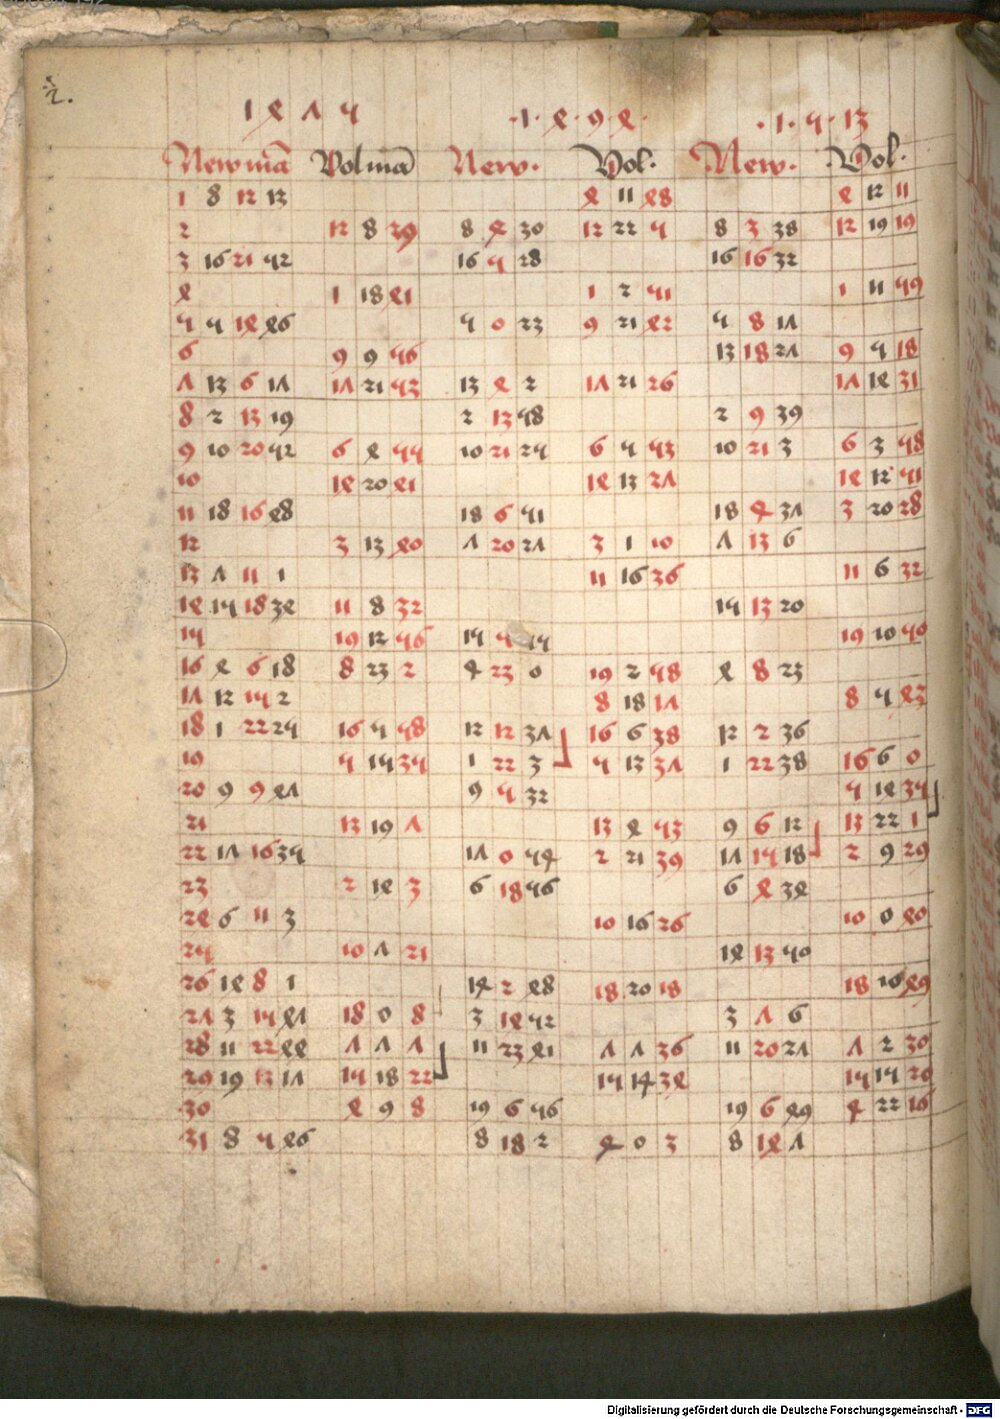 2.
1475 · 1 · 4 · 9 · 4 · · 1 · 5 · 13
Newmā Volmād New · Vol · New · Vol ·
1 8 12 13 4 11 48 4 12 11
2 12 8 29 8 4 30 12 22 5 8 3 38 12 19 19
3 16 21 52 16 5 28 16 16 32
4 1 18 41 1 2 51 1 11 59
5 5 14 46 5 0 23 9 21 42 5 8 17
6 9 9 56 13 18 27 9 5 18
7 13 6 17 17 21 53 13 4 2 17 21 26 17 14 31
8 2 13 19 2 13 58 2 9 39
9 10 20 52 6 4 55 10 21 25 6 5 53 10 21 3 6 3 58
10 14 20 41 14 13 27 14 12 51
11 18 16 48 18 6 51 18 4 37 3 20 28
12 3 13 40 7 20 27 3 1 10 7 13 6
13 7 11 1 11 16 36 11 6 32
14 15 18 34 11 8 32 15 13 20
15 19 12 56 15 5 15 19 10 50
16 4 6 18 8 23 2 4 23 0 19 2 58 4 8 23
17 12 15 2 8 18 17 8 5 43
18 1 22 25 16 5 58 12 12 37 16 6 38 12 2 36
19 5 15 35 1 22 3 5 13 37 1 22 38 16 6 0
20 9 9 47 9 5 32 5 14 35
21 13 19 7 13 4 53 9 6 12 13 22 1
22 17 16 35 17 0 54 2 21 39 17 15 18 2 9 29
23 2 14 3 6 18 56 6 4 34
24 6 11 3 10 16 26 10 0 40
25 10 7 21 14 13 50
26 14 8 1 14 2 48 18 20 18 18 16 49
27 3 15 47 18 0 8 3 14 52 3 7 6
28 11 22 44 7 7 7 11 23 41 7 7 36 11 20 27 7 2 30
29 19 13 17 15 18 22 15 14 34 15 15 20
30 4 9 8 19 6 56 19 6 49 4 22 16
31 8 5 46 8 18 2 4 0 3 8 14 7
Digitalisierung gefördert durch die Deutsche Forschungsgemeinschaft - DFG